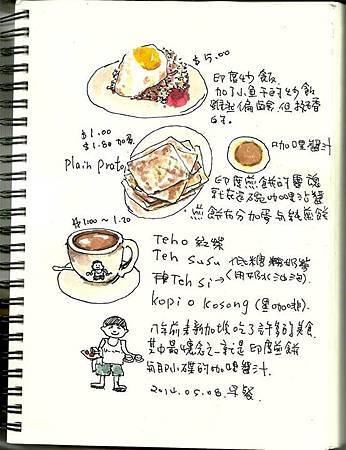 $5.00
印度炒飯
加了小魚干的炒飯
雖然偏鹹,但超香
的.
$1.00
$1.80 加蛋
Plain Prata
咖哩醬汁
印度煎餅的靈魂
就在這碗咖哩沾醬
煎餅有分加蛋与純煎餅
$1.00~1.20
Teho 紅茶
Teh susu 低糖
Teh si → (用奶水沖泡)
kopi o kosong (黑咖啡).
八年前去新加坡吃了許多的美食
其中最懷念之一就是印度煎餅
与小碟的咖哩醬汁.
2014.05.08. 早餐